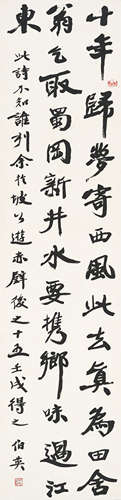 十年歸夢寄西風此去眞為田舍
翁乞取蜀岡新井水要攜鄉味過江
東
此詩不知誰列余於坡公遊赤壁後之十五壬戌得之 伯英